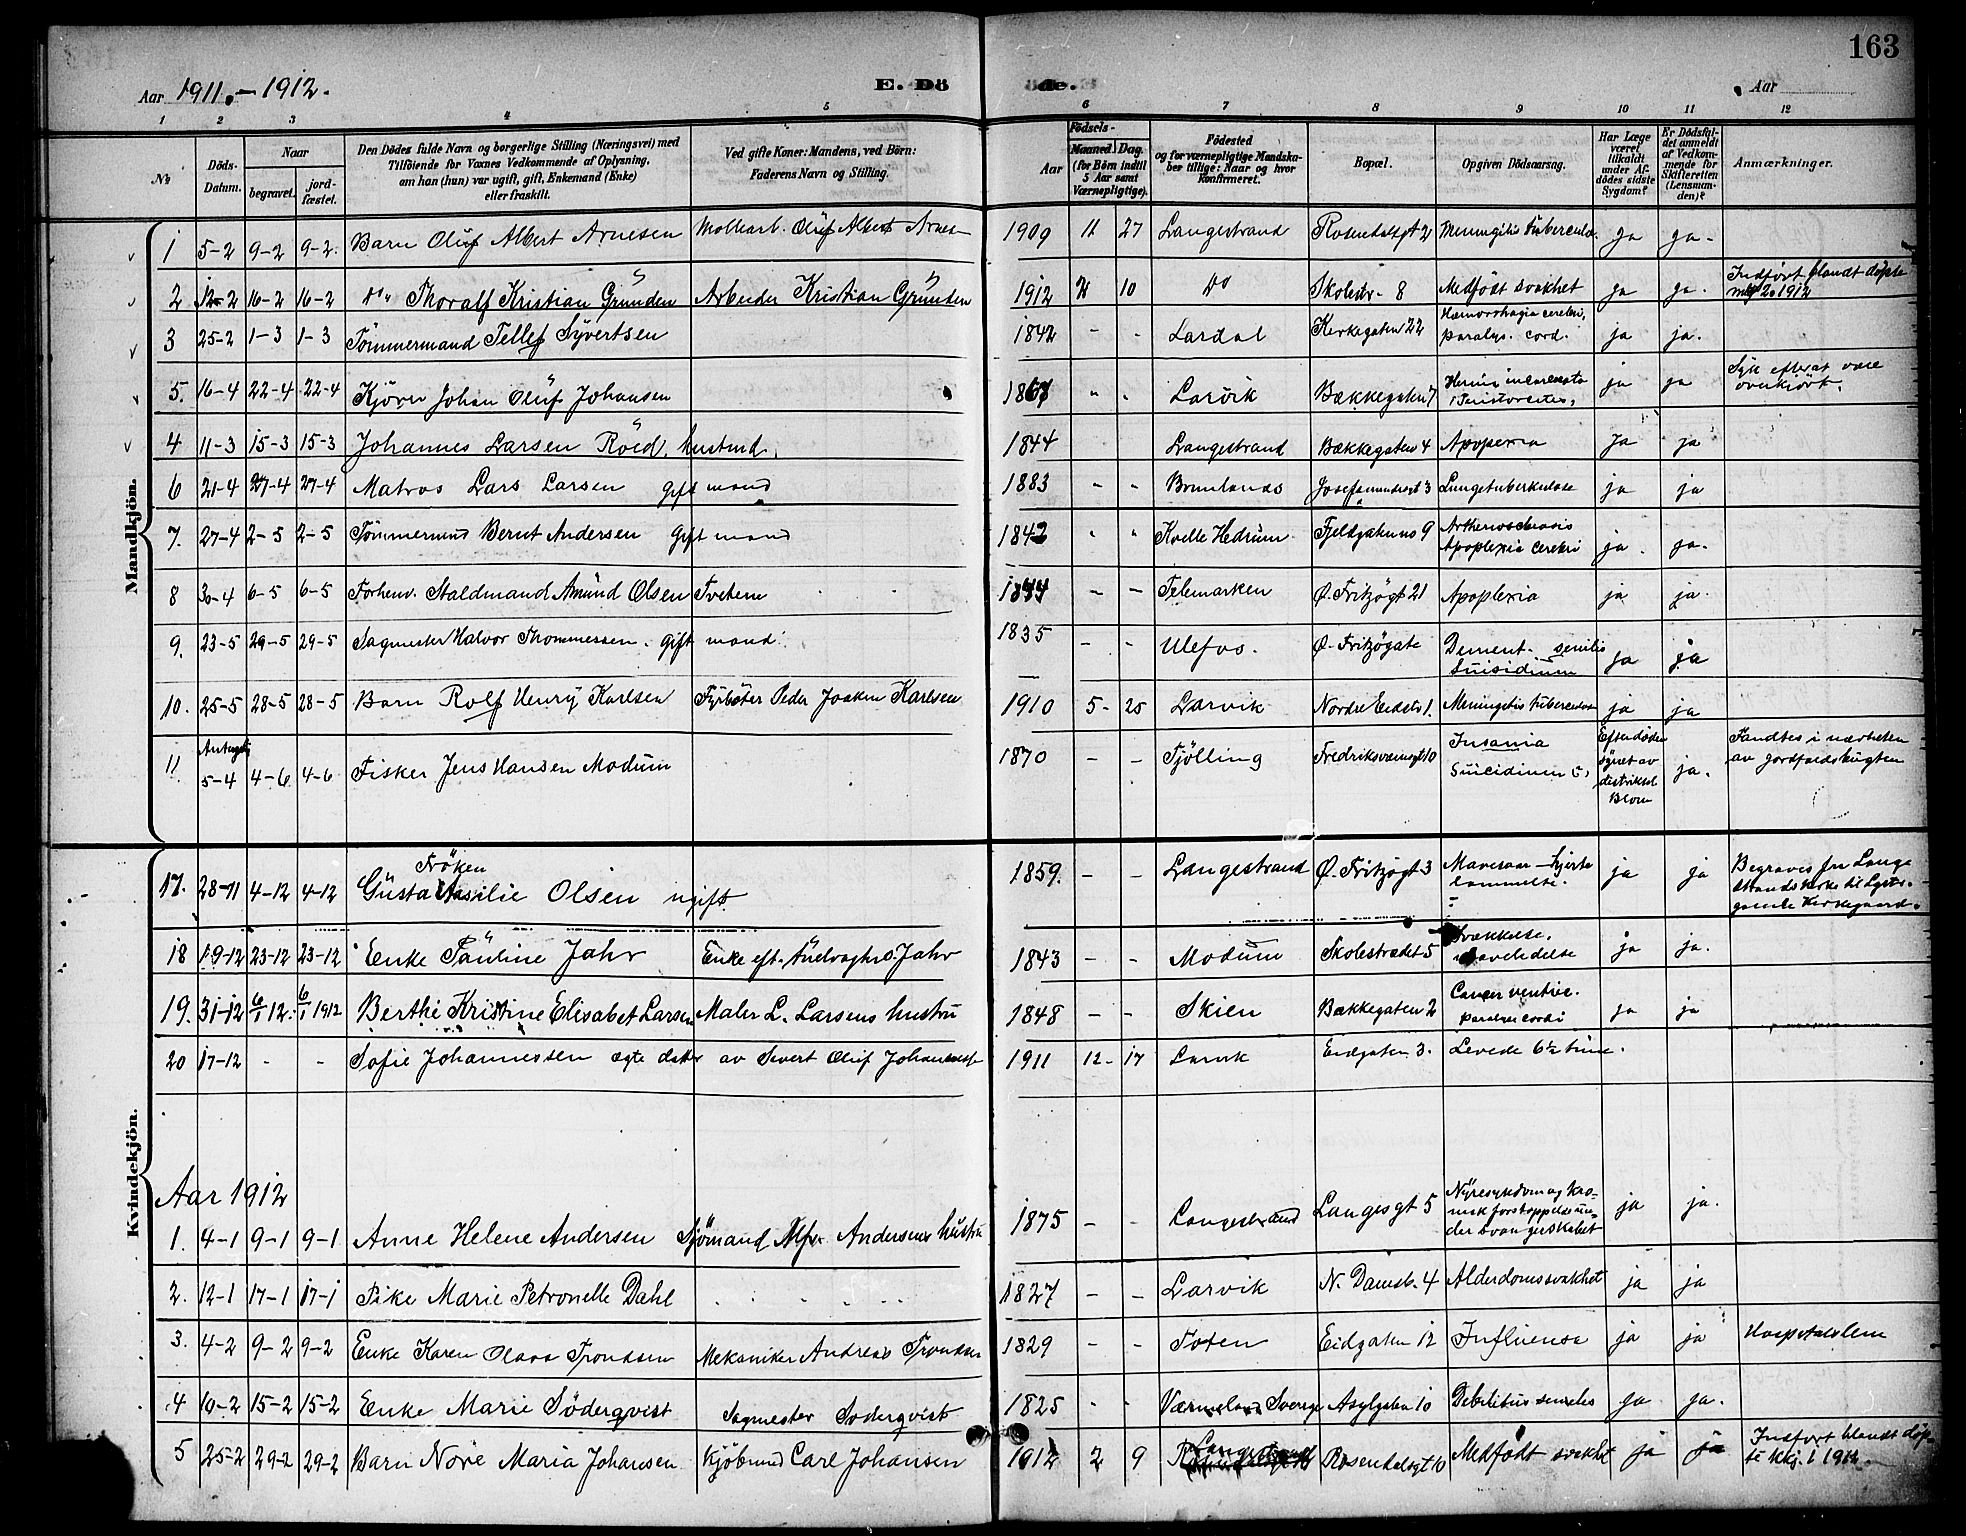 163
Aar 1911.–1912.
E. Döde.
Aar
1 2 3 4 5 6 7 8 9 10 11 12
No
Döds-Datum.
Naar
begravet.
jordfæstet.
Den Dödes fulde Navn og borgerlige Stilling (Næringsvei) med
Tilföiende for Voxnes Vedkommende af Oplysning,
om han (hun) var ugift, gift, Enkemand (Enke)
eller fraskilt.
Ved gifte Koner: Mandens, ved Börn:
Faderens Navn og Stilling.
Födsels-
Aar
Maaned. Dag.
(for Börn indtil
5 Aar samt
Værnepligtige).
Födested
og for værnepligtige Mandskaber tillige: Naar og hvor
konfirmeret.
Bopæl.
Opgiven Dödsaarsag.
Har Læge
været
tilkaldt
under Afdödes sidste
Sygdom?
Er Dödsfaldet anmeldt
af Vedkommende for
Skifteretten
(Lensmanden)?
Anmærkninger.
Mandkjön.
1 5-2 9-2 9-2. Barn Oluf Albert Arnesen Oluf Albert 1909 11 27 Langestrand Rosendalsgt 2 Meningitis tuberculo. ja ja.
2 12-2 16-2 16-2 Do. Thoralf Kristian Grunden Arbeider Kristian Grunden 1912 2 10 Do Skolestr. 8 Medfödt svakhet ja ja. Indfört blandt döpte
1912
3 25-2 1-3 1-3 Tömmermand Tellef Syvertsen 1842 - - Lardal Kirkegaten 22 Hæmorrhagia cerebri,
paralys. cord. ja ja.
5. 16-4 22-4 22-4 Kjörer Johan Oluf Johansen 1867 Larvik Bækkegaten 7 Hernia incarcerata
ja ja Syk efter at være
overkjört.
4 11-3 15-3 15-3 Johannes Larsen Röed. 1844 Langestrand Bækkegaten 4 Apopexia ja ja
6 21-4 27-4 27-4 Matros Lars Larsen gift mand 1883 - - Brunlanes 3 Lungetuberkulose ja ja
7. 27-4 2-5 2-5 Tömmermand Bernt Andersen gift mand 1842 Kvelle Hedrum Fjeldgatens 9 Artherioschrosis
Apoplexia cerebri ja. ja.
8 30-4 6-5 6-5 Forhenv. Staldmand Amund Olsen Tvetene 1844 - - Telemarken Ö. Fritzögt 21 Apoplexia ja ja
9. 23-5 29-5 29-5 Sagmester Halvor Thommessen. gift mand 1835 - - Ulefos. Ö. Fritzögate Dement. senilis
Suisidium ja ja
10. 25-5 28-5 28-5 Barn Rolf Henry Karlsen Fyrböter Peder Joakim Karlsen 1910 5- 25 Larvik Nordre 1. Meningitis tuberculosa ja ja
11 Antagelig
5-4 4-6 4-6 Fisker Jens Hansen Modum 1870 - - Tjölling Fredriksværnsgt 10 Insania
Suicidium Efter döden
synet av
distriktsl
Blom ja. Fandtes i nærheten
av
Kvindekjön.
17. 28-11 4-12 4-12 Fröken
Gusta Olsen ugift. 1859. - - Langestrand Ö. Fritzögt 3 Mavesaar - hjerte
lammelse. ja ja Begraves fra Langestrands kirke til
gamle Kirkegaard.
18 19-12 23-12 23-12 Enke Pauline Jahr Enke eft. Jahr 1843 - - Modum Skolestrædet 5 Svækkelse,
ja ja.
19. 31-12 6/1 12. 6/1 1912 Berthe Kristine Elisabet Larsen Maler L. Larsens hustru 1848 - - Skien Bækkegaten 2 Cancer ventric.
paralys cordi ja ja
20 17-12 - - Sofie Johannessen ægte datter av Sivert Oluf Johannessen 1911 12- 17 Larvik Eidgaten 3. Levede 6½ time.
Aar 1912
1. 4-1 9-1 9-1 Anne Helene Andersen Sjömand Alfr. Andersens hustru 1875 - - Langestrand Langesgt 5 Nyresykdom og kronisk forstoppelse under svangerskabet ja ja.
2. 12-1 17-1 17-1 Pike Marie Petronelle Dahl 1827 - - Larvik N. Damsb. 4 Alderdomssvakhet ja ja
3. 4-2 9-2 9-2 Enke Karen Olava Trondsen Mekaniker Andreas Trondsen 1829 - - Toten Eidgaten 12 Influensa ja ja Hospitalslem
4 10-2 15-2 15-2 Enke Marie Söderqvist Sagmester Soderqvist 1825 Værmeland Sverige Asylgaten 10 Debilitas seniles ja ja.
5 25-2 29-2 29-2 Barn Nore Maria Johansen Kjöbmand Carl Johansen 1912 2 9 Rosendalsgt 10 Medfödt svakhet ja ja Indfört blandt döpte kkj. i 1912.